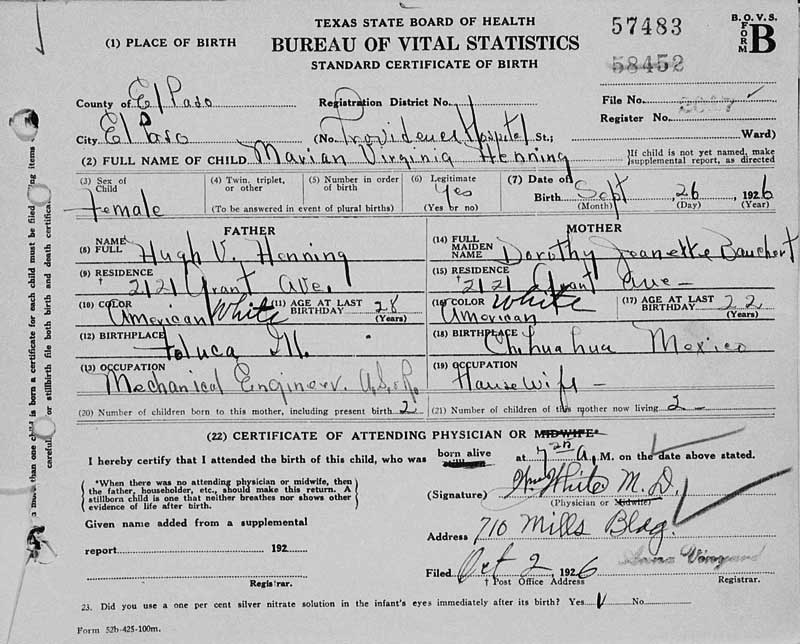 TEXAS STATE BOARD OF HEALTH
(1) PLACE OF BIRTH
BUREAU OF VITAL STATISTICS
STANDARD CERTIFICATE OF BIRTH
57483
58452
B. O. V. S.
FORM B
County of El Paso Registration District No. File No.
Register No.
City El Paso (No. Providence Hospital St.; Ward)
(2) FULL NAME OF CHILD Marian Virginia Henning {If child is not yet named, make supplemental report, as directed
(3) Sex of Child Female
(4) Twin, triplet, or other
(5) Number in order of birth
(To be answered in event of plural births)
(6) Legitimate Yes (Yes or no)
(7) Date of Birth Sept 26, 1926
(Month) (Day) (Year)
FATHER
(8) FULL NAME Hugh V. Henning
(9) RESIDENCE † 2121 Grant Ave.
(10) COLOR American White (11) AGE AT LAST BIRTHDAY 28 (Years)
(12) BIRTHPLACE Toluca Ill.
(13) OCCUPATION Mechanical Engineer.
MOTHER
(14) FULL MAIDEN NAME Dorothy Jeanette Bauchert
(15) RESIDENCE † 2121 Grant Ave -
(16) COLOR American White (17) AGE AT LAST BIRTHDAY 22 (Years)
(18) BIRTHPLACE Chihuahua Mexico
(19) OCCUPATION House Wife -
(20) Number of children born to this mother, including present birth 2 (21) Number of children of this mother now living 2 -
(22) CERTIFICATE OF ATTENDING PHYSICIAN OR MIDWIFE*
I hereby certify that I attended the birth of this child, who was born alive at A. M. on the date above stated.
{*When there was no attending physician or midwife, then the father, householder, etc., should make this return. A stillborn child is one that neither breathes nor shows other evidence of life after birth.}
(Signature) White M.D.
(Physician or Midwife)
Given name added from a supplemental
report 192
Registrar.
Address 710 Mills Bldg.
Filed Oct 2, 1926
† Post Office Address
Registrar.
23. Did you use a one per cent silver nitrate solution in the infant's eyes immediately after its birth? Yes No
Form 52b-425-100m.